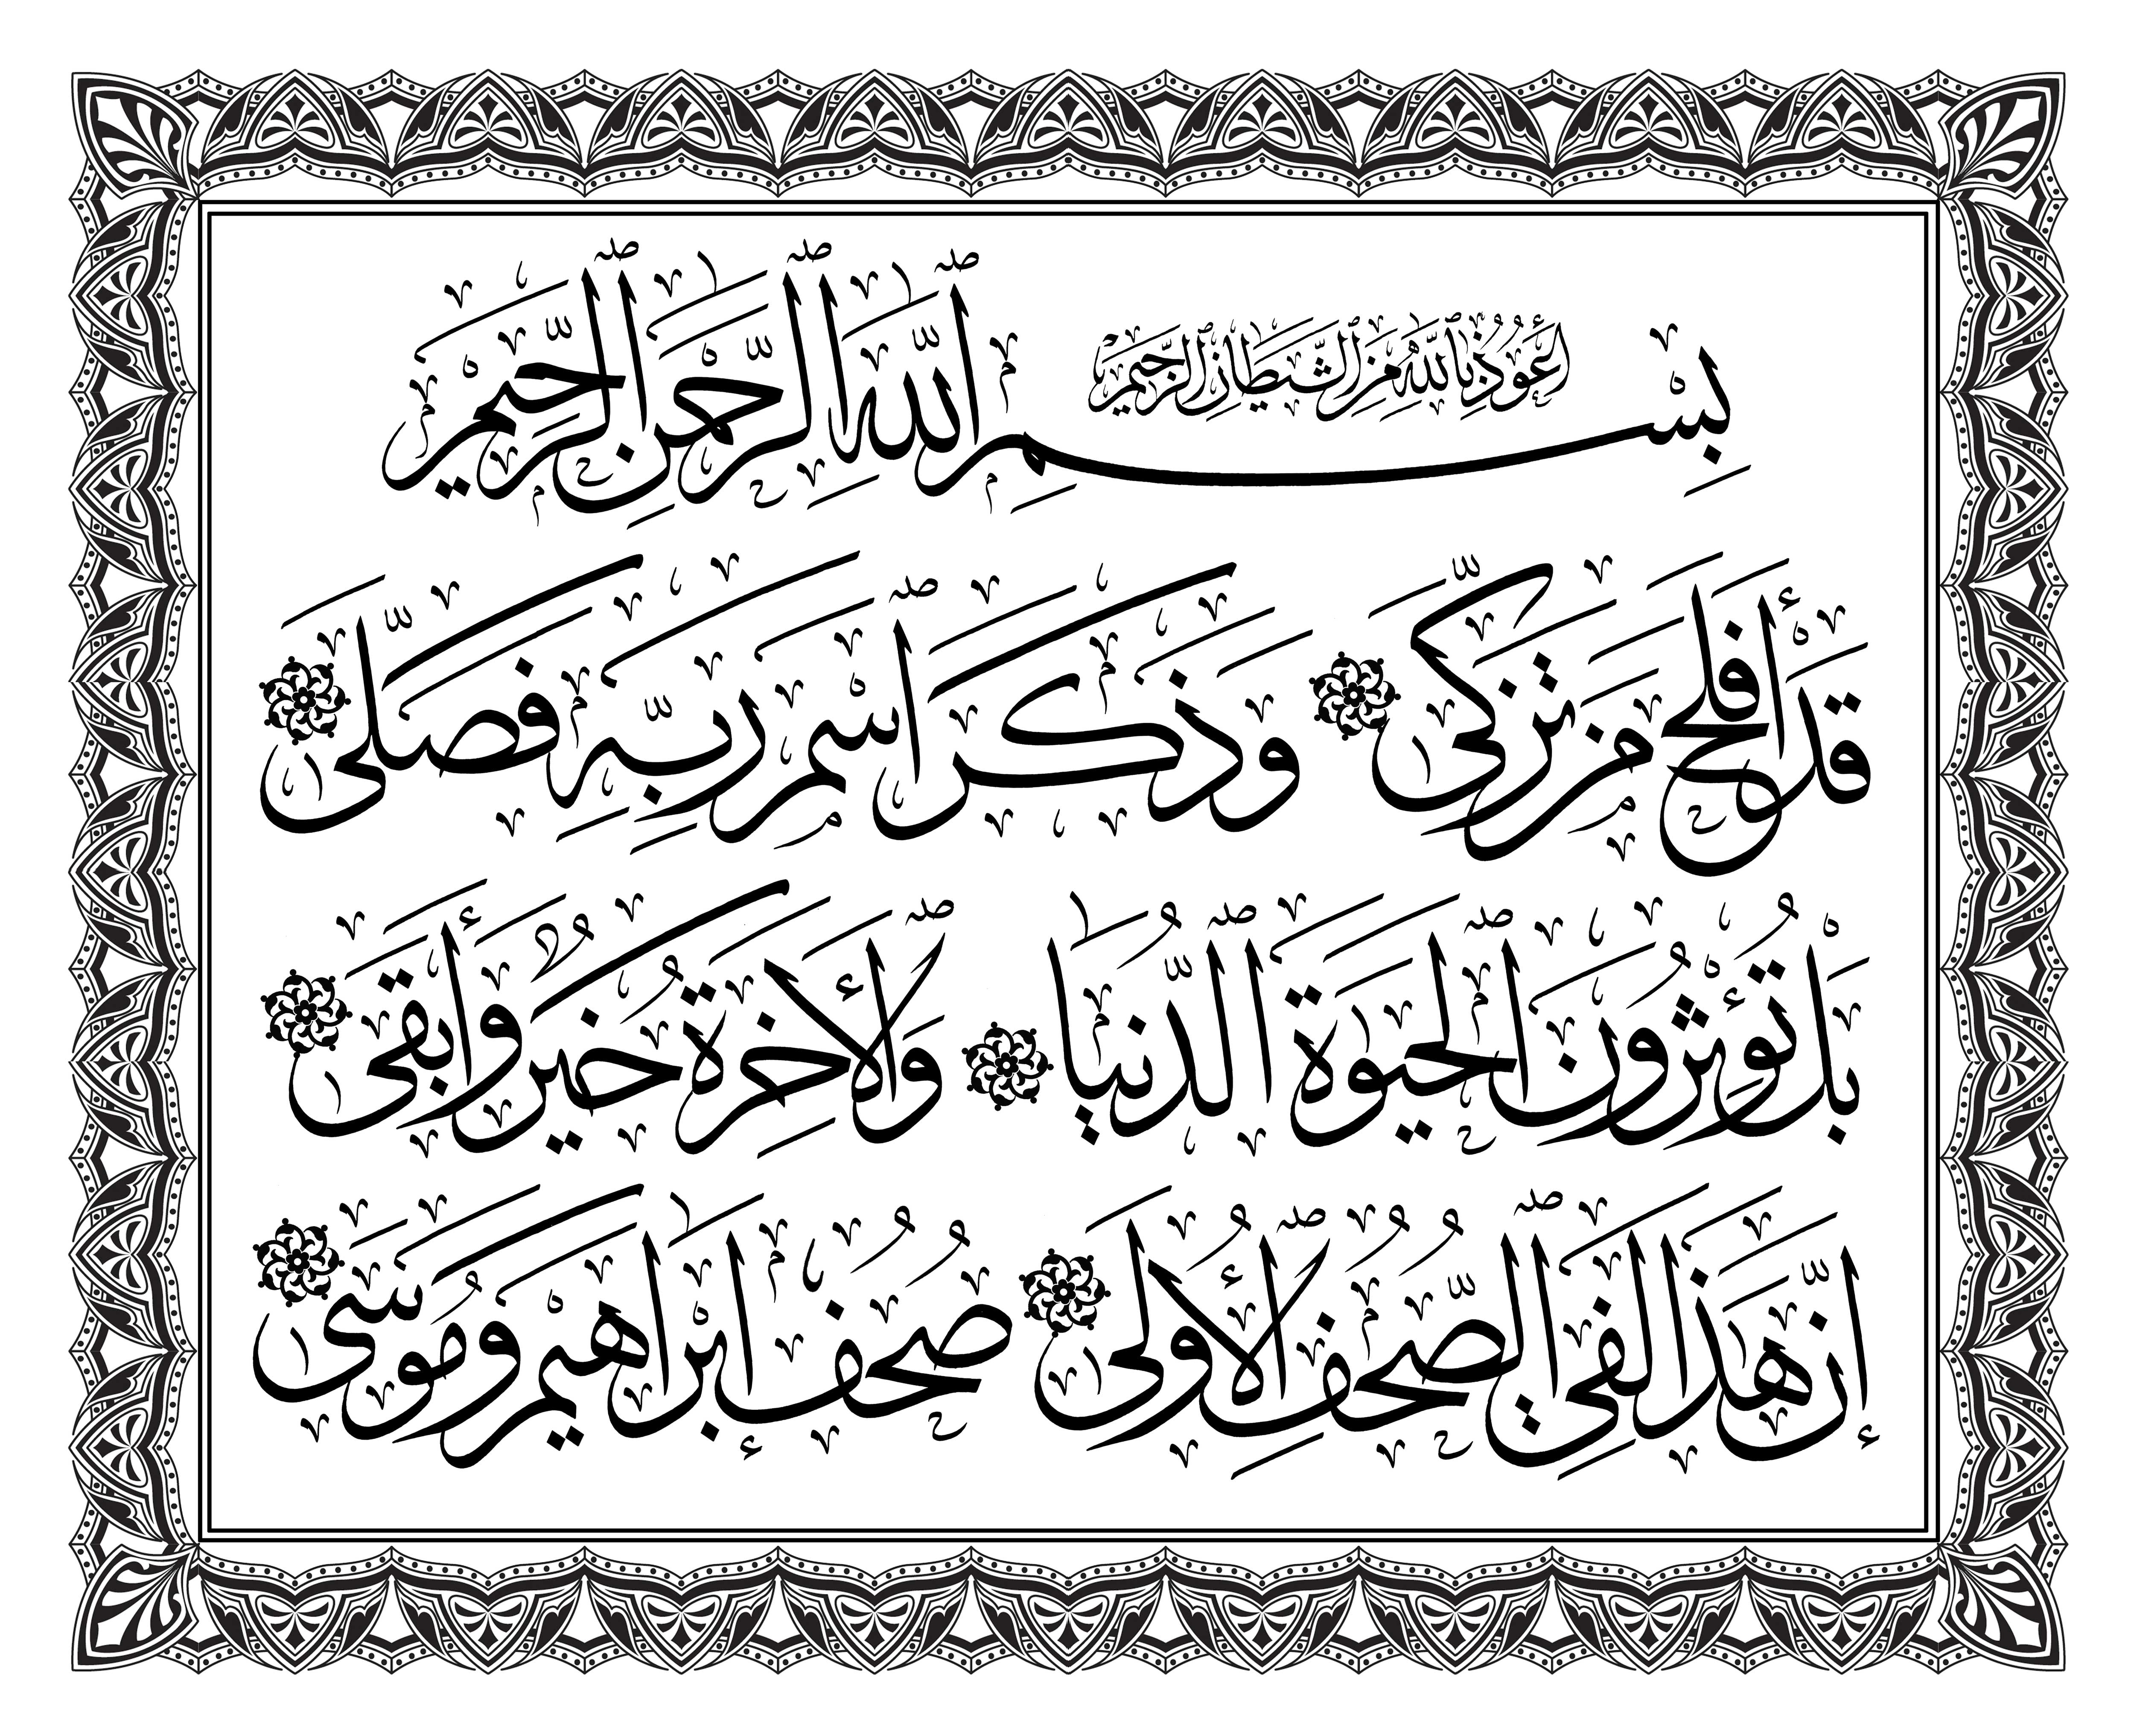 أَعُوذُ بِاللهِ مِنَ الشَّيْطَانِ الرَّجِيمِ
بِسْمِ اللهِ الرَّحْمٰنِ الرَّحِيمِ
قَدْ أَفْلَحَ مَنْ تَزَكَّىٰ وَذَكَرَ اسْمَ رَبِّهِ فَصَلَّىٰ
بَلْ تُؤْثِرُونَ الْحَيَوٰةَ الدُّنْيَا وَالْأَخِرَةُ خَيْرٌ وَأَبْقَىٰ
إِنَّ هٰذَا لَفِي الصُّحُفِ الْأُولَىٰ صُحُفِ إِبْرَاهِيمَ وَمُوسَىٰ